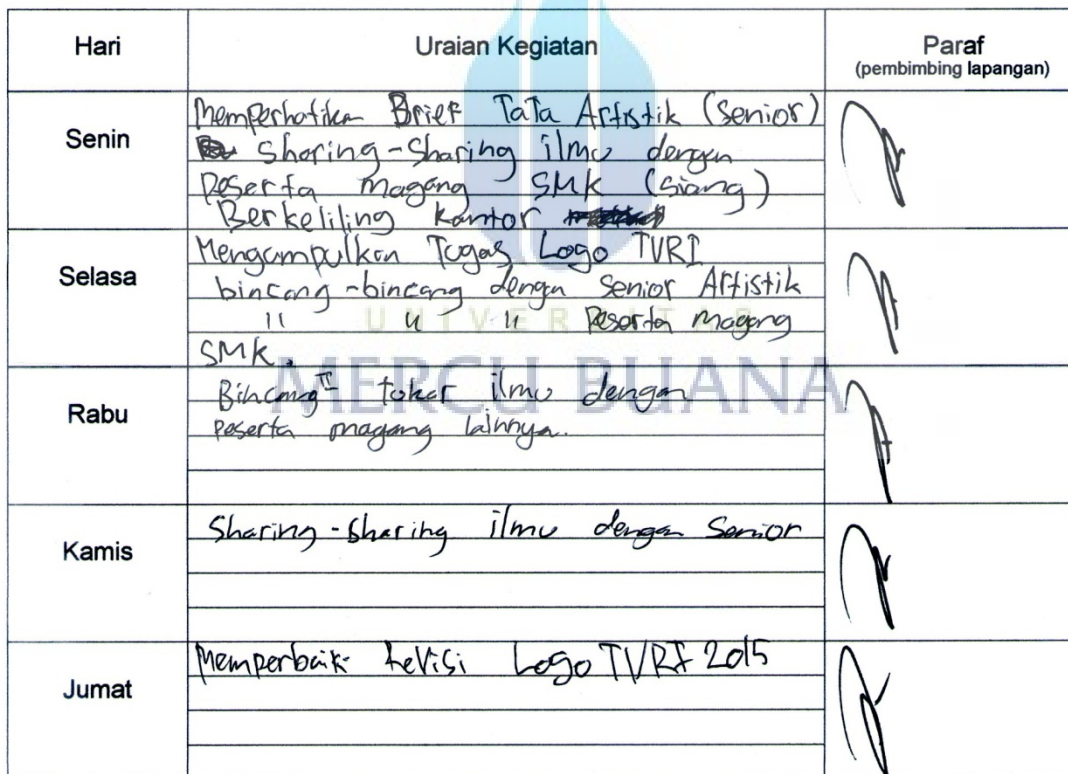 Hari Uraian Kegiatan Paraf
(pembimbing lapangan)
Senin
Memperhatikan Brief Tata Artistik (Senior)
Sharing-Sharing ilmu dengan
Peserta magang SMK (Siang)
Berkeliling kantor
Selasa
Mengumpulkan Tugas Logo TVRI
bincang-bincang dengan Senior Artistik
" " " Peserta magang
SMK.
UNIVERSITAS
MERCU BUANA
Rabu
Bincang² tukar ilmu dengan
Peserta magang lainnya.
Kamis
Sharing-Sharing ilmu dengan Senior
Jumat
Memperbaiki Revisi Logo TVRI 2015